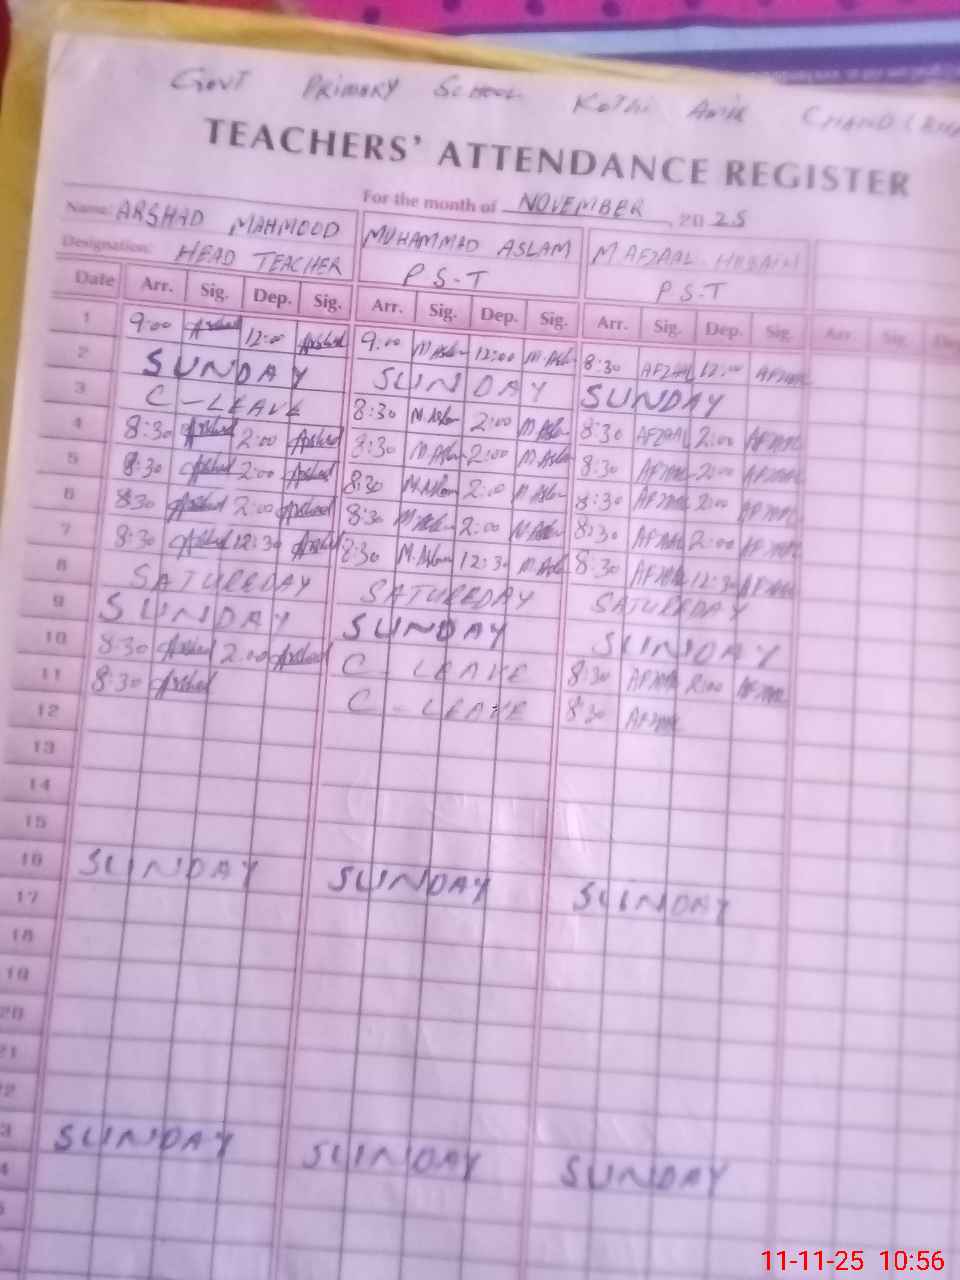 GOVT PRIMARY SCHOOL KOTHI AMIR CHAND
TEACHERS' ATTENDANCE REGISTER
For the month of NOVEMBER 2025
Name: ARSHAD MAHMOOD MUHAMMAD ASLAM M AFZAAL HUSSAIN
Designation: HEAD TEACHER P S-T P S-T
Date Arr. Sig. Dep. Sig. Arr. Sig. Dep. Sig. Arr. Sig. Dep. Sig. Arr. Sig.
1 9:00 Arshad 12:00 Arshad 9:00 M.Aslam 12:00 M.Aslam 8:30 AFZAAL 12:00 AFZAAL
2 SUNDAY SUNDAY SUNDAY
3 C-LEAVE 8:30 M.Aslam 2:00 M.Aslam 8:30 AFZAAL 2:00 AFZAAL
4 8:30 Arshad 2:00 Arshad 8:30 M.Aslam 2:00 M.Aslam 8:30 AFZAAL 2:00 AFZAAL
5 8:30 Arshad 2:00 Arshad 8:30 M.Aslam 2:00 M.Aslam 8:30 AFZAAL 2:00 AFZAAL
6 8:30 Arshad 2:00 Arshad 8:30 M.Aslam 2:00 M.Aslam 8:30 AFZAAL 2:00 AFZAAL
7 8:30 Arshad 12:30 Arshad 8:30 M.Aslam 12:30 M.Aslam 8:30 AFZAAL 12:30 AFZAAL
8 SATUREDAY SATUREDAY SATUREDAY
9 SUNDAY SUNDAY SUNDAY
10 8:30 Arshad 2:00 Arshad C LEAVE 8:30 AFZAAL 2:00 AFZAAL
11 8:30 Arshad C - LEAVE 8:30 AFZAAL
12
13
14
15
16 SUNDAY SUNDAY SUNDAY
17
18
19
20
21
22
23 SUNDAY SUNDAY SUNDAY
11-11-25 10:56